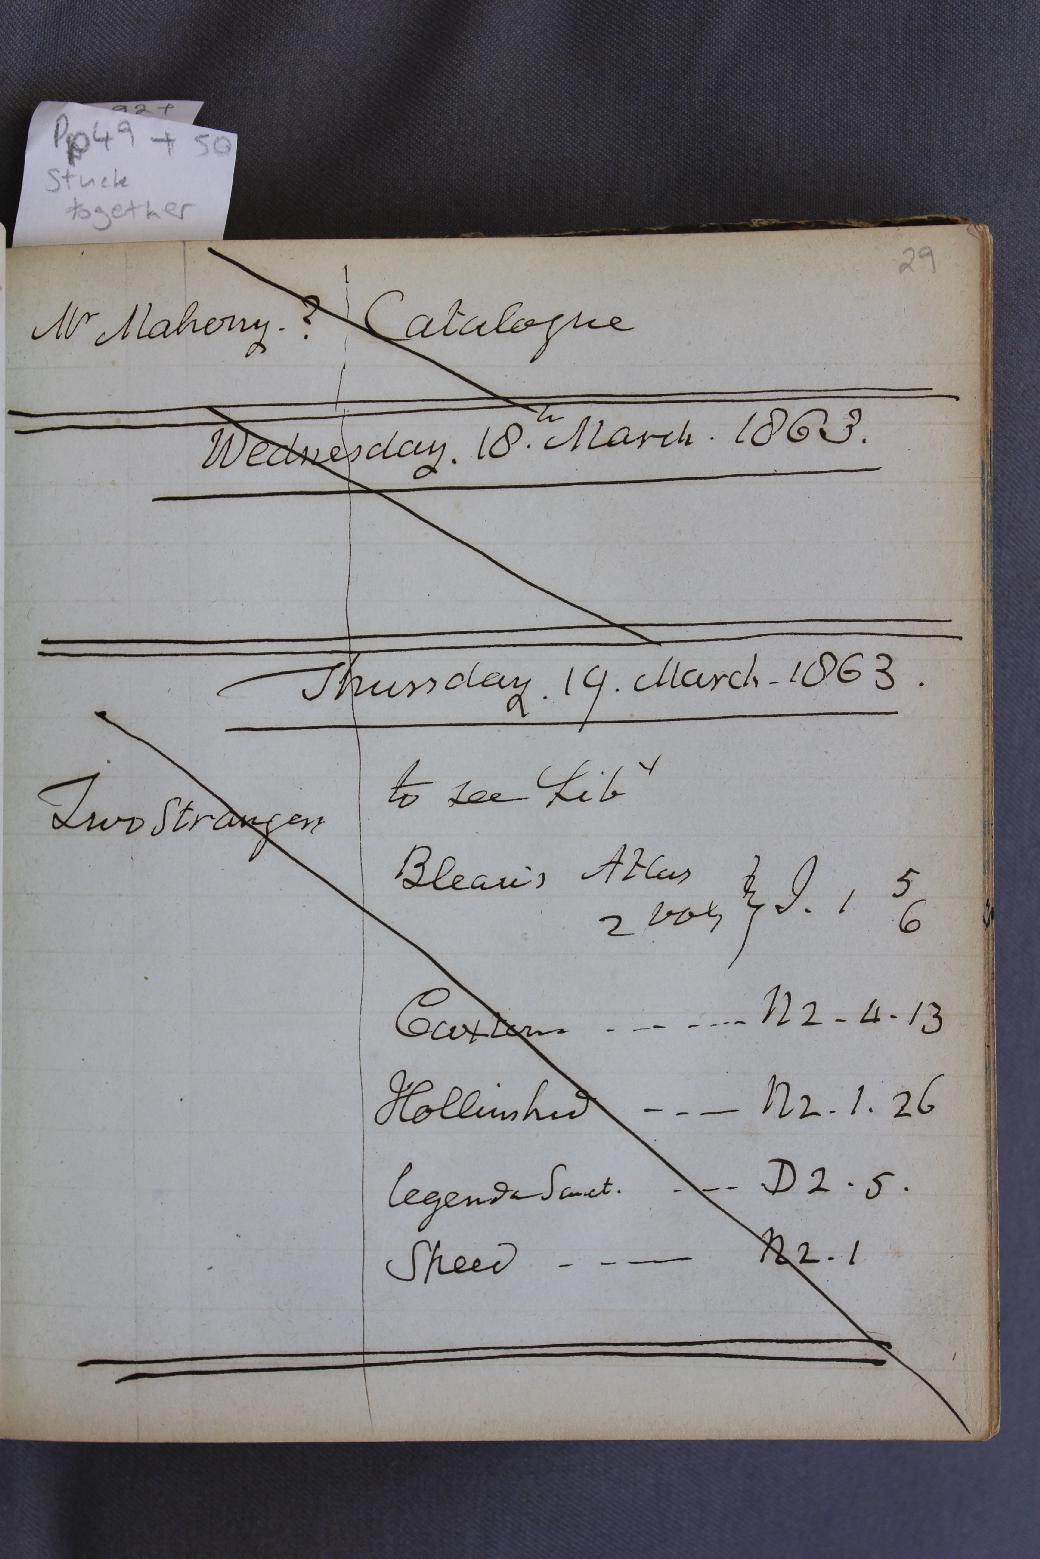 92+
Pp49 + 50
Stuck
together
29
Mr Mahony. ? Catalogue
Wednesday. 18.th March. 1863.
Thursday. 19. March. 1863.
Two Strangers to see Liby
Bleau's Atlas } J. 1 5
2 vols 6
Caxtons ------- N2-4-13
Hollinshed --- N2.1.26
Legenda Sanct. --- D2.5.
Speed ---- N2.1